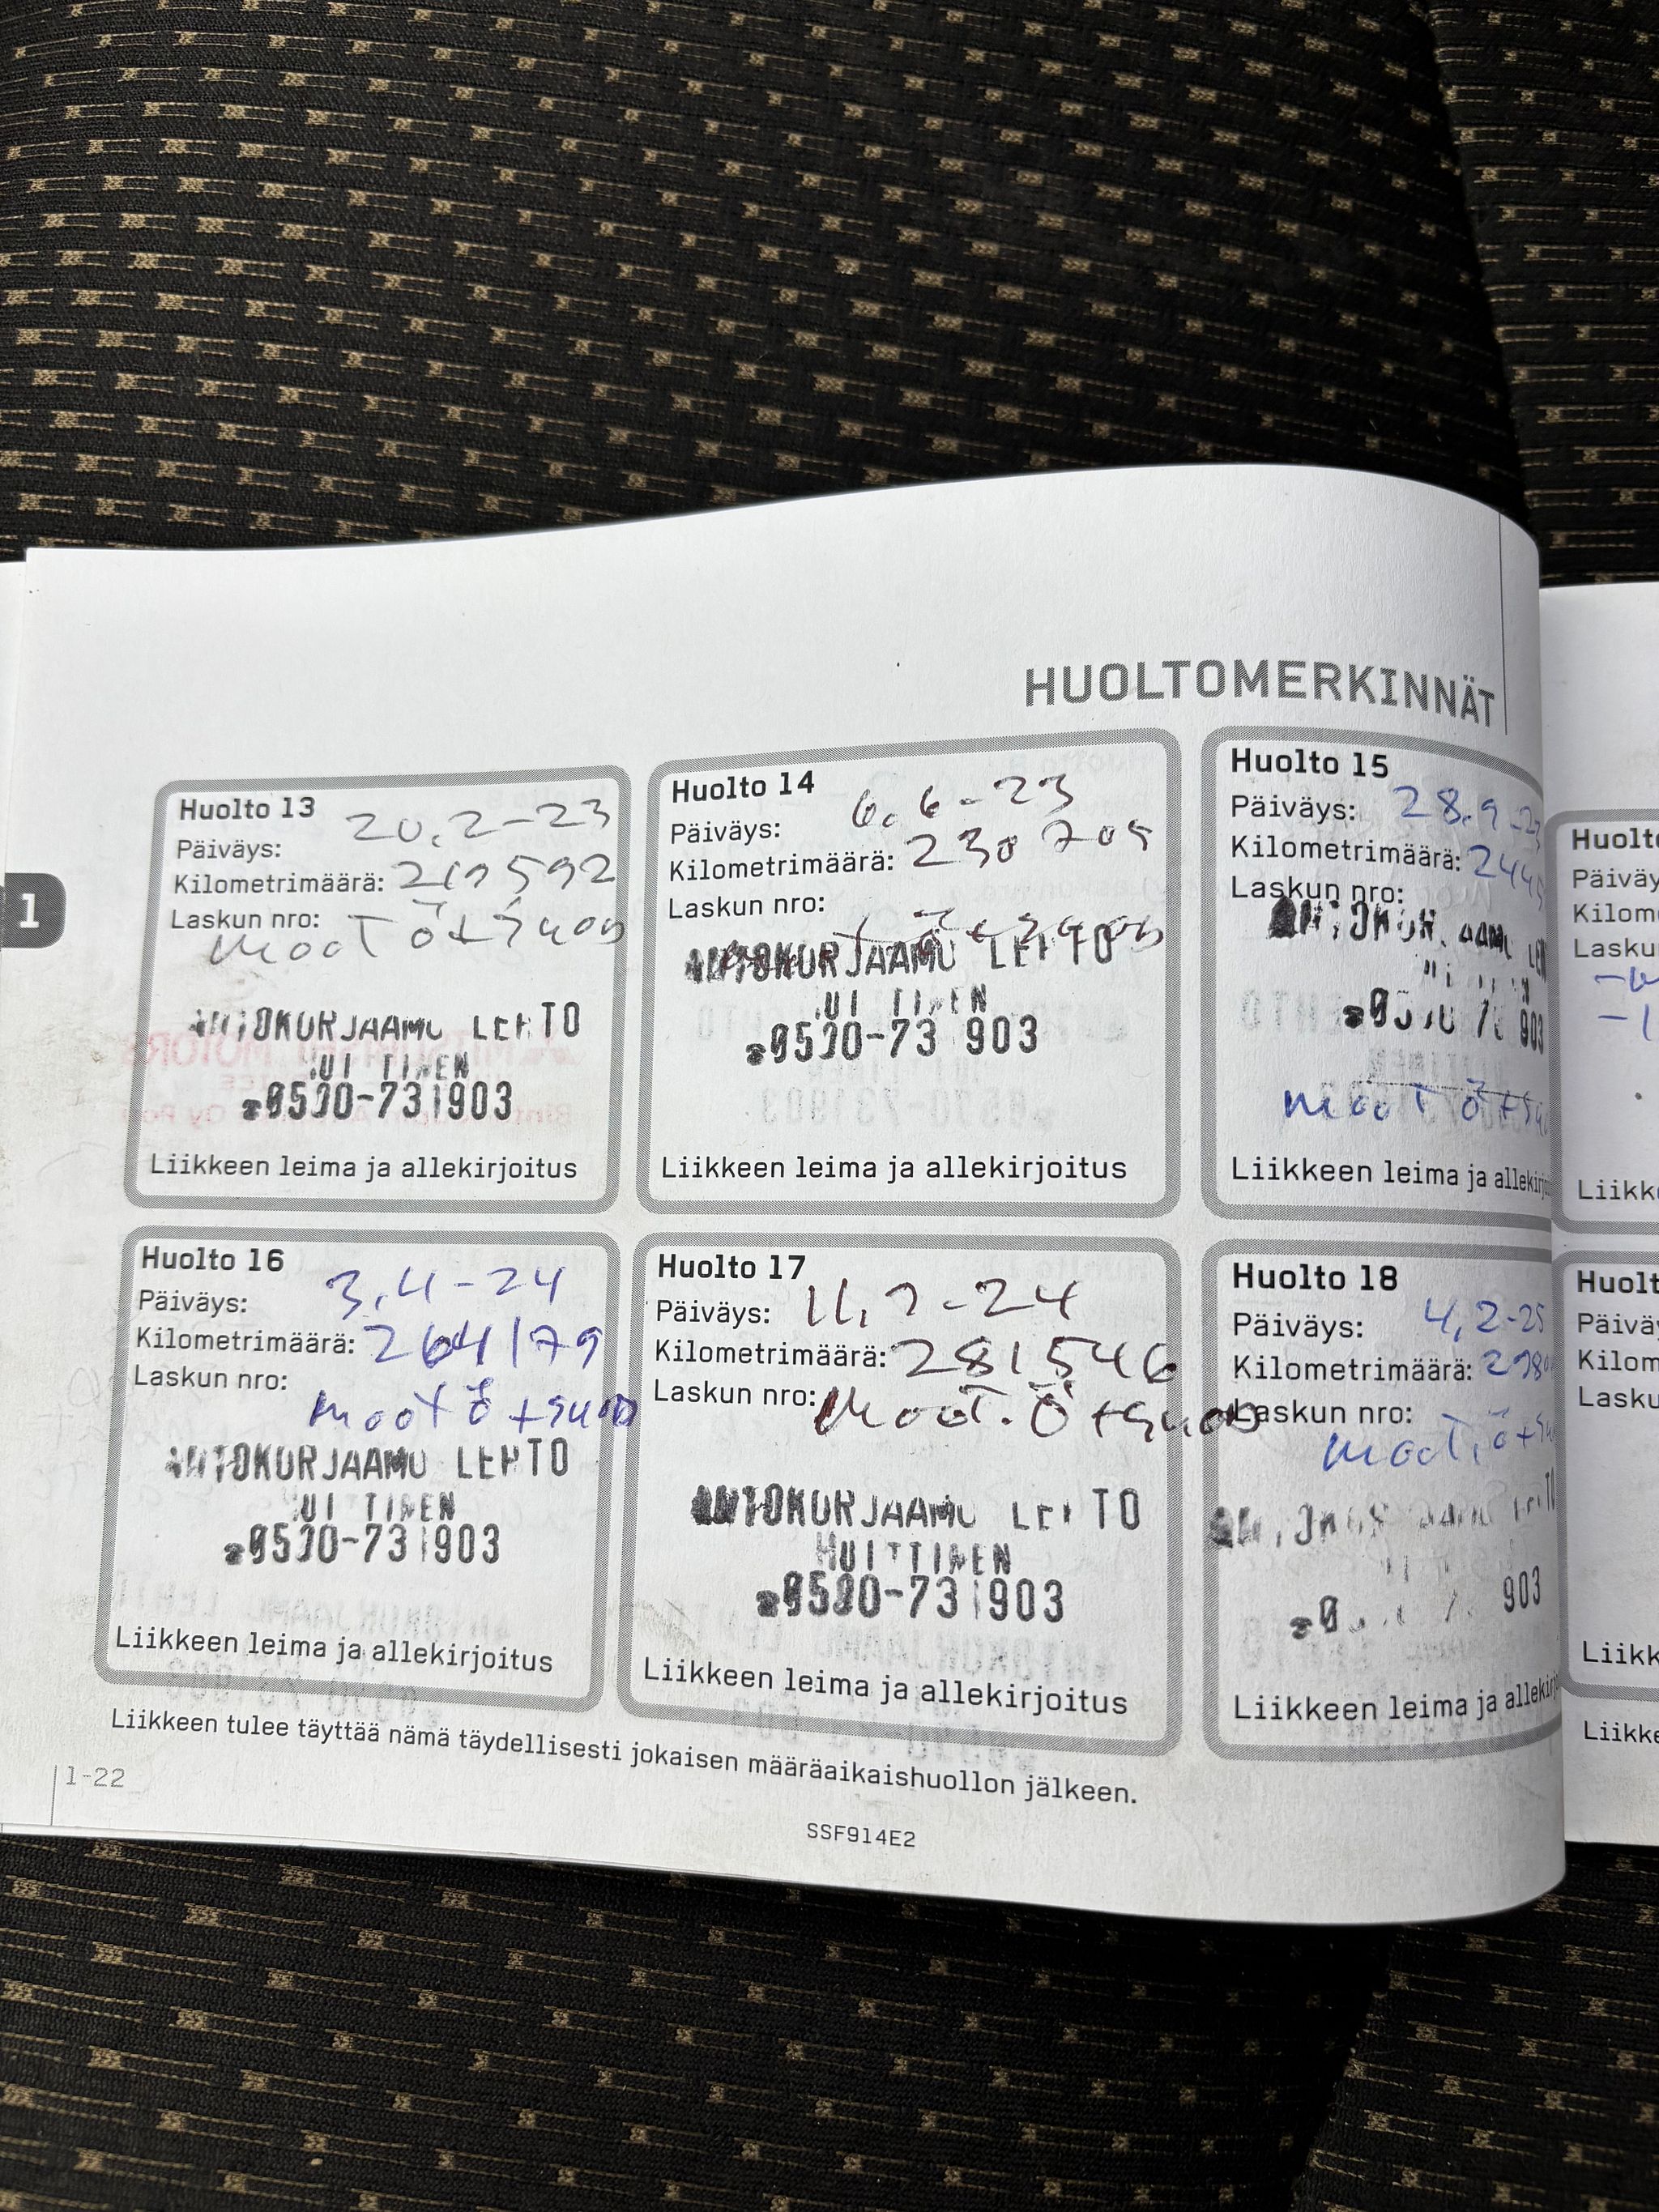 HUOLTOMERKINNÄT
1
Huolto 13
Päiväys: 20.2-23
Kilometrimäärä: 592
Laskun nro:
moot ö+suod
AUTOKORJAAMO LEHTO
HUITTINEN
☎0500-731903
Liikkeen leima ja allekirjoitus
Huolto 14
Päiväys: 6.6-23
Kilometrimäärä: 230 705
Laskun nro:
AUTOKORJAAMO LEHTO
HUITTINEN
☎0500-73 903
Liikkeen leima ja allekirjoitus
Huolto 15
Päiväys: 28.9-23
Kilometrimäärä: 244
Laskun nro:
903
moot ö+su
Liikkeen leima ja allekirj
Huolto 16
Päiväys: 3.4-24
Kilometrimäärä: 264179
Laskun nro:
moot ö+suod
AUTOKORJAAMO LEHTO
HUITTINEN
☎0500-731903
Liikkeen leima ja allekirjoitus
Huolto 17
Päiväys: 11.7-24
Kilometrimäärä: 281546
Laskun nro: moot. ö+suod
AUTOKORJAAMO LEHTO
HUITTINEN
☎0500-731903
Liikkeen leima ja allekirjoitus
Huolto 18
Päiväys: 4.2-25
Kilometrimäärä: 298
Laskun nro:
moot. ö+su
903
Liikkeen leima ja allekirj
Huolt
Päiväy
Kilom
Lasku
Liikk
Huolt
Päiväy
Kilom
Lasku
Liikk
Liikke
Liikkeen tulee täyttää nämä täydellisesti jokaisen määräaikaishuollon jälkeen.
1-22
SSF914E2